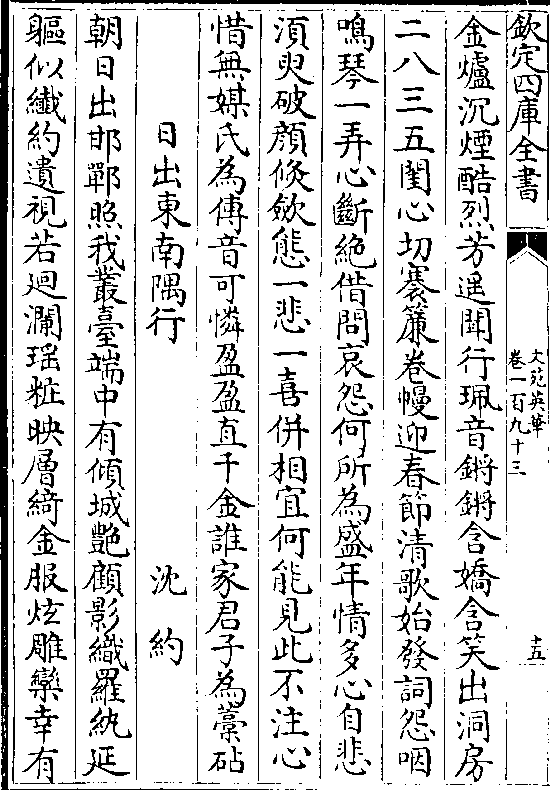 欽定四庫全書
文苑英華
卷一百九十三
十五
金爐沉煙酷烈芳遥聞行珮音鏘鏘含嬌含笑出洞房
二八三五閨心切褰簾卷幔迎春節清歌始發詞怨咽
鳴琴一弄心斷絶借問哀怨何所為盛年情多心自悲
須臾破顔倐斂態一悲一喜併相宜何能見此不注心
惜無媒氏為傳音可憐盈盈直千金誰家君子為藁砧
日出東南隅行
沈約
朝日出邯鄲照我叢臺端中有傾城艶顧影織羅紈延
軀似纖約遺視若廻瀾瑶粧映層綺金服炫雕欒幸有